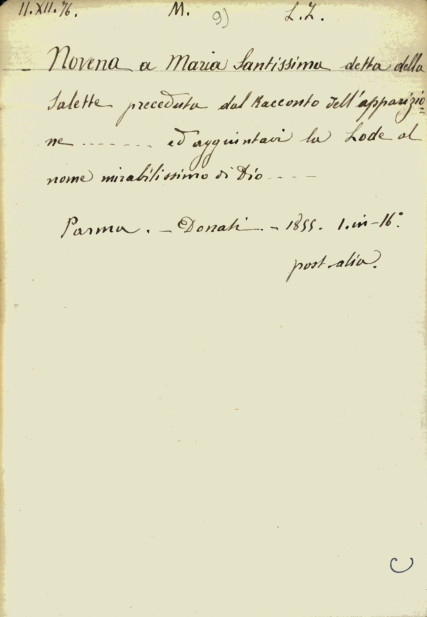 11.XII.76. M. 9) L.Z.
Novena a Maria Santissima detta della
Salette preceduta dal Racconto dell'apparizio-
ne ....... ed aggiuntavi la Lode al
nome mirabilissimo di Dio ----
Parma. - Donati. - 1855. 1. in-16°
post-alia.
C